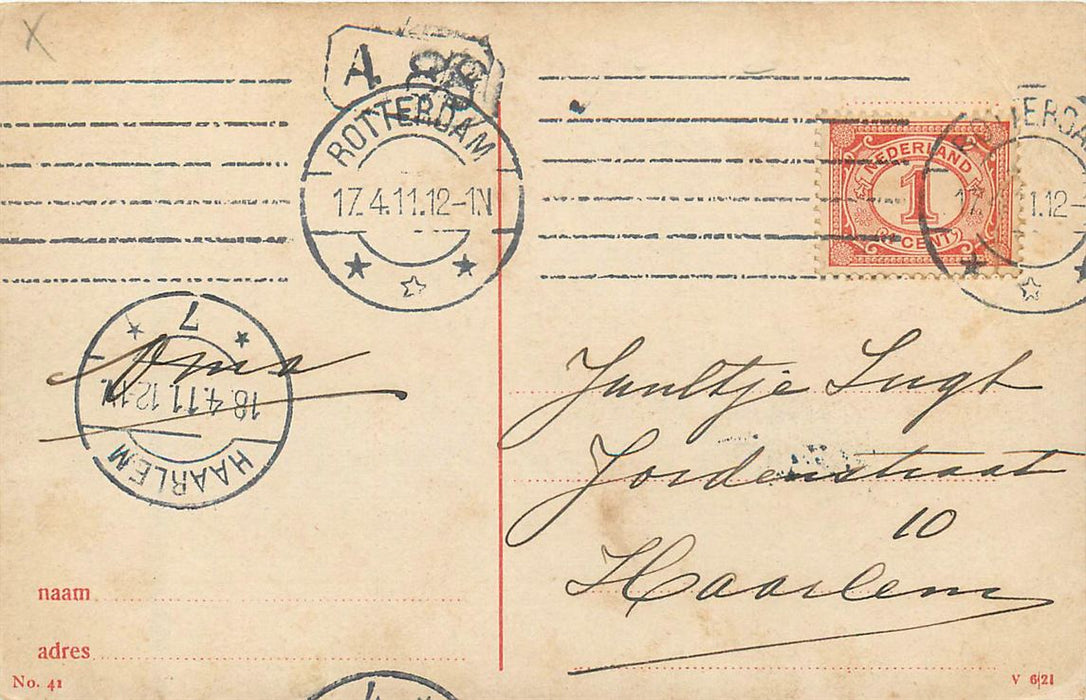 A 88
ROTTERDAM
17.4.11.12-1N
NEDERLAND
1
CENT
ROTTERDAM
11.12-
7
18.4.11.12-1N
HAARLEM
Oma
Juultje Lugt
Jordenstraat
10
Haarlem
naam
adres
No. 41
V 6|21